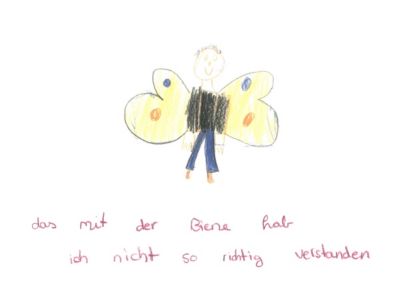 das mit der Biene hab
ich nicht so richtig verstanden